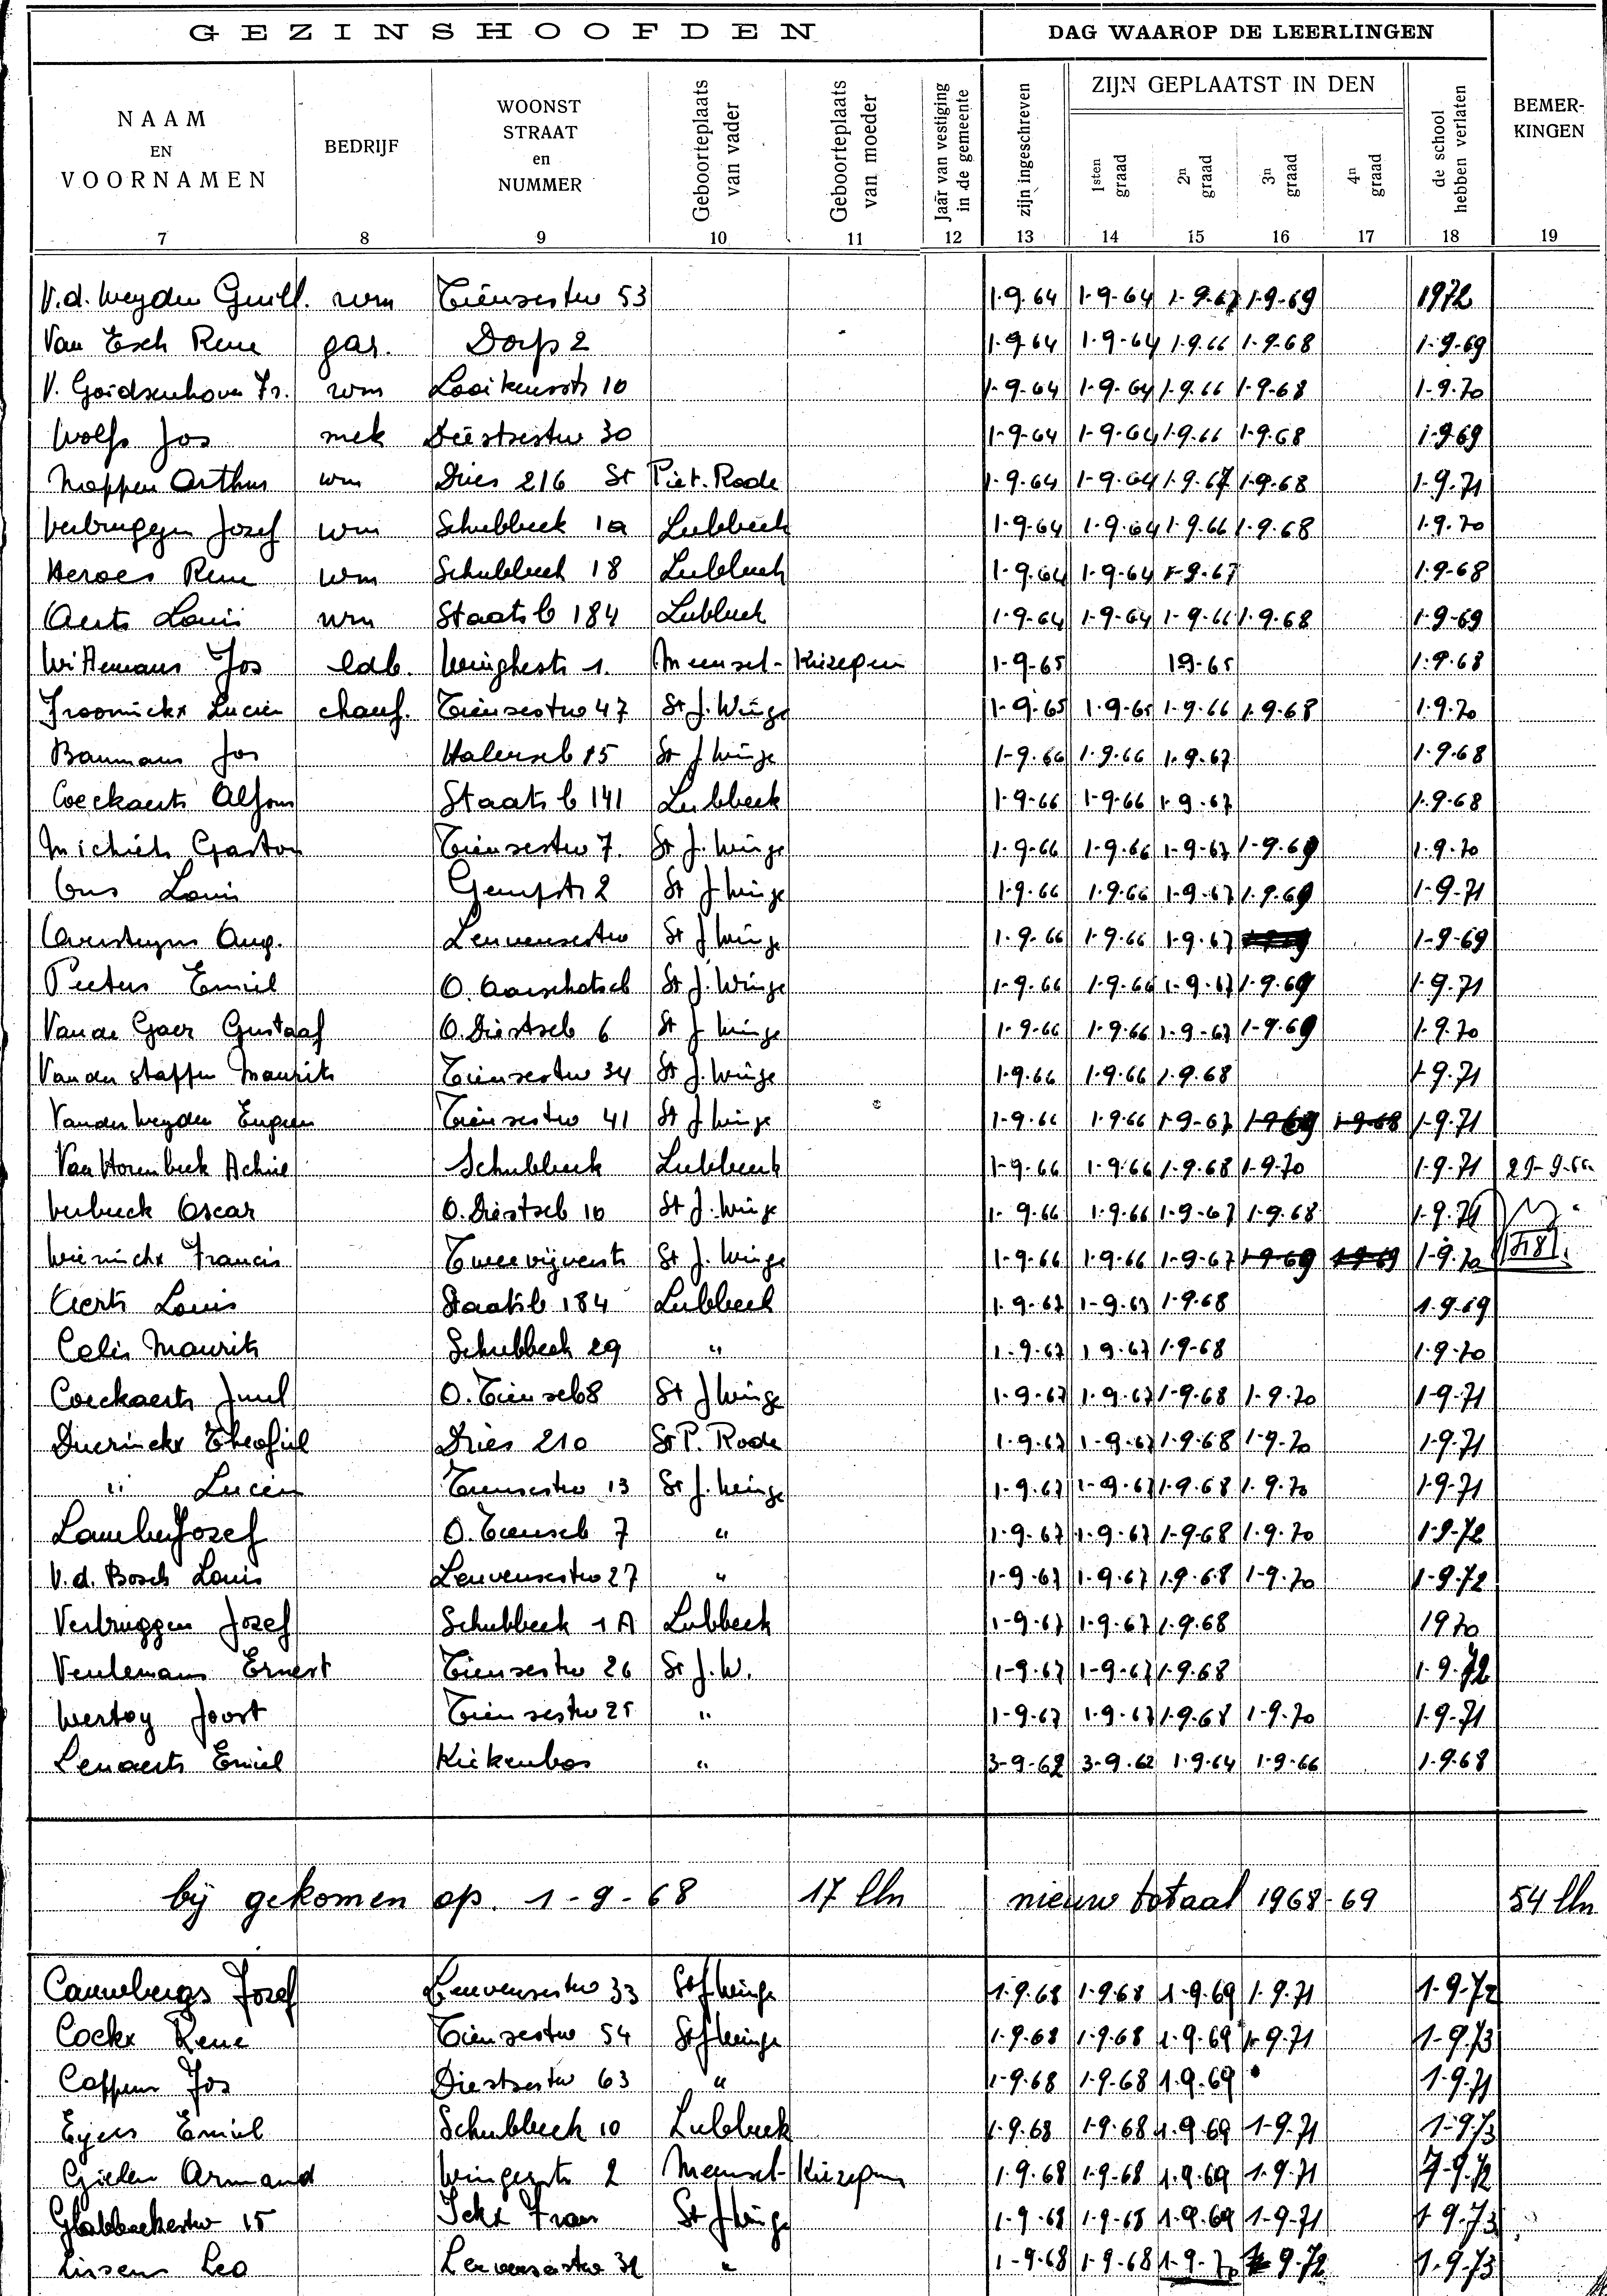 GEZINSHOOFDEN DAG WAAROP DE LEERLINGEN
NAAM EN VOORNAMEN BEDRIJF WOONST STRAAT en NUMMER Geboorteplaats van vader Geboorteplaats van moeder Jaar van vestiging in de gemeente zijn ingeschreven ZIJN GEPLAATST IN DEN 1sten graad 2n graad 3n graad 4n graad de school hebben verlaten BEMERKINGEN
7 8 9 10 11 12 13 14 15 16 17 18 19
V.d. Weyden Guill. wm Tiensestw 53 1.9.64 1-9-64 1-9-67 1-9-69 1972
Van Esch Rene gar. Dorp 2 1-9-64 1-9-64 1.9.66 1-9-68 1-9-69
V. Goidsenhoven Fr. wm Looikensstr 10 1-9-64 1-9-64 1.9.66 1-9-68 1-9-70
Wolfs Jos mek Diestsestw 30 1-9-64 1-9-64 1.9.66 1-9.68 1-9.69
Noppen Arthur wm Dries 216 St Piet. Rode 1-9.64 1-9-64 1.9.67 1-9.68 1-9.71
Verbruggen Jozef wm Schubbeek 1a Lubbeek 1-9.64 1-9.64 1-9.66 1-9.68 1-9.70
Heroes Rene wm Schubbeek 18 Lubbeek 1-9.64 1-9.64 1-9-67 1-9-68
Aerts Louis wm Staatsb 184 Lubbeek 1-9-64 1-9-64 1-9-66 1-9.68 1-9-69
Wittemans Jos ldb. Winghestr 1. Meensel- Kiezegem 1-9-65 1 9-65 1.9.68
Froominckx Lucien chauf. Tiensestw 47 St J. Winge 1-9.65 1.9-65 1-9.66 1.9.68 1.9.70
Baumans Jos Halenseb 85 St J Winge 1-9.66 1.9.66 1.9.67 1.9.68
Coeckaerts Alfons Staats b 141 Lubbeek 1-9-66 1-9-66 1-9-67 1.9.68
Michiels Gaston Tiensestw 7. St J. Winge 1-9.66 1-9.66 1-9-67 1-9.69 1.9.70
Ons Louis Gempstr 2 St J Winge 1-9.66 1-9.66 1-9-67 1.9.69 1-9-71
Overstyns Aug. Leuvensestw St J Winge 1-9.66 1-9.66 1-9.67 1-9-69
Peeters Emiel O. Aarschotseb St J. Winge 1-9.66 1-9.66 1-9-67 1-9.69 1-9.71
Van de Gaer Gustaaf O. Diestseb 6 St J Winge 1-9.66 1-9.66 1-9-67 1-9.69 1-9.70
Van der stappen Maurits Tiensestw 34 St J. Winge 1-9.66 1-9.66 1.9.68 1-9.71
Vander Weyden Eugeen Tiensestw 41 St J Winge 1-9.66 1-9.66 1-9-67 1-9-69 1-9-68 1-9.71
Van Horenbeek Achiel Schubbeek Lubbeek 1-9.66 1-9.66 1-9.68 1-9.70 1-9.71
Verbeeck Oscar O. Diestseb 10 St J. Winge 1-9.66 1-9.66 1-9-67 1-9.68 1-9.71
Wierinckx Francis Tweevijverstr St J. Winge 1-9.66 1-9.66 1-9-67 1-9-69 1-9-69 1-9.70
Aerts Louis Staatsb 184 Lubbeek 1.9-67 1-9-67 1-9.68 1.9.69
Celis Maurits Schubbeek 29 " 1.9.67 1 9.67 1-9-68 1-9-70
Coeckaerts Juul O. Tienseb 8 St J Winge 1-9.67 1-9.67 1-9.68 1-9.70 1-9.71
Duerinckx Theofiel Dries 210 St P. Rode 1.9.67 1-9-67 1-9.68 1-9-70 1-9.71
" Lucien Tiensestw 13 St J. Winge 1-9.67 1-9-67 1-9.68 1.9.70 1-9-71
Lauwers Jozef O. Tienseb 7 " 1-9.67 1-9.67 1-9.68 1-9.70 1-9-72
V.d. Bosch Louis Leuvensestw 27 " 1-9-67 1-9.67 1.9.68 1-9.70 1-9.72
Verbruggen Jozef Schubbeek 1A Lubbeek 1-9.67 1-9.67 1.9.68 1970
Veulemans Ernest Tiensestw 26 St J.W. 1-9.67 1-9-67 1-9.68 1-9.72
Wertoy Joost Tiensestw 25 " 1-9-67 1.9-67 1-9.68 1-9.70 1-9.71
Lenaerts Emiel Kiekenbos " 3-9-62 3-9.62 1.9.64 1-9.66 1.9.68
bij gekomen op. 1-9-68 17 lln nieuw totaal 1968-69 54 lln
Cauwbergs Jozef Leuvensestw 33 St J Winge 1.9.68 1-9.68 1-9.69 1-9.71 1-9-72
Cockx Rene Tiensestw 54 St J Winge 1-9.68 1-9.68 1-9.69 1-9.71 1-9.73
Coppens Jos Diestsestw 63 " 1-9.68 1-9.68 1-9.69 1-9.71
Eyers Emiel Schubbeek 10 Lubbeek 1-9.68 1-9.68 1-9.69 1-9.71 1-9.73
Gielen Armand Wingestr 2 Meensel- Kiezegem 1-9.68 1-9-68 1-9.69 1-9.71 1-9.72
Glabbeekestw 15 Ickx Frans St J Winge 1-9.68 1-9-68 1-9.69 1-9-71 1 9.73
Lissens Leo Leuvensestw 32 " 1-9.68 1-9-68 1-9-70 1-9.72 1-9.73